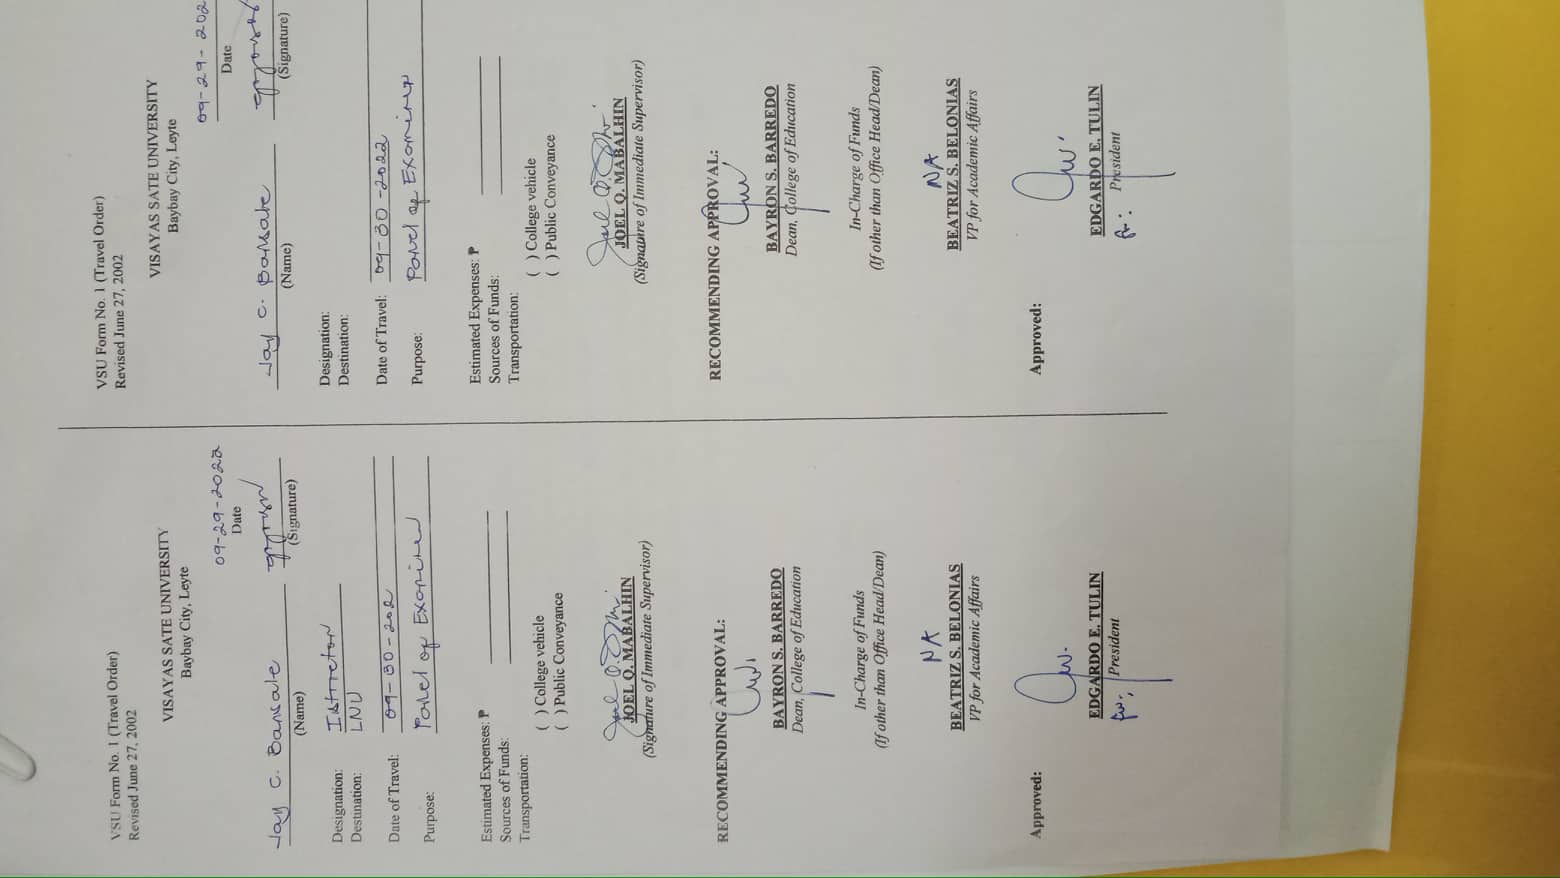 VSU Form No. 1 (Travel Order)
Revised June 27, 2002
VISAYAS SATE UNIVERSITY
Baybay City, Leyte
09-29-2022
Date
Jay C. Bansale
(Name)
(Signature)
Designation: Istrretor
Destination: LNU
Date of Travel: 09-30-202
Purpose: Panel of Examiner
Estimated Expenses: ₱
Sources of Funds:
Transportation:
( ) College vehicle
( ) Public Conveyance
JOEL Q. MABALHIN
(Signature of Immediate Supervisor)
RECOMMENDING APPROVAL:
BAYRON S. BARREDO
Dean, College of Education
In-Charge of Funds
(If other than Office Head/Dean)
NA
BEATRIZ S. BELONIAS
VP for Academic Affairs
Approved:
EDGARDO E. TULIN
for: President
VSU Form No. 1 (Travel Order)
Revised June 27, 2002
VISAYAS SATE UNIVERSITY
Baybay City, Leyte
09-29-202
Date
Jay C. Bansale
(Name)
(Signature)
Designation:
Destination:
Date of Travel: 09-30-2022
Purpose: Panel of Examiner
Estimated Expenses: ₱
Sources of Funds:
Transportation:
( ) College vehicle
( ) Public Conveyance
JOEL Q. MABALHIN
(Signature of Immediate Supervisor)
RECOMMENDING APPROVAL:
BAYRON S. BARREDO
Dean, College of Education
In-Charge of Funds
(If other than Office Head/Dean)
NA
BEATRIZ S. BELONIAS
VP for Academic Affairs
Approved:
EDGARDO E. TULIN
for: President